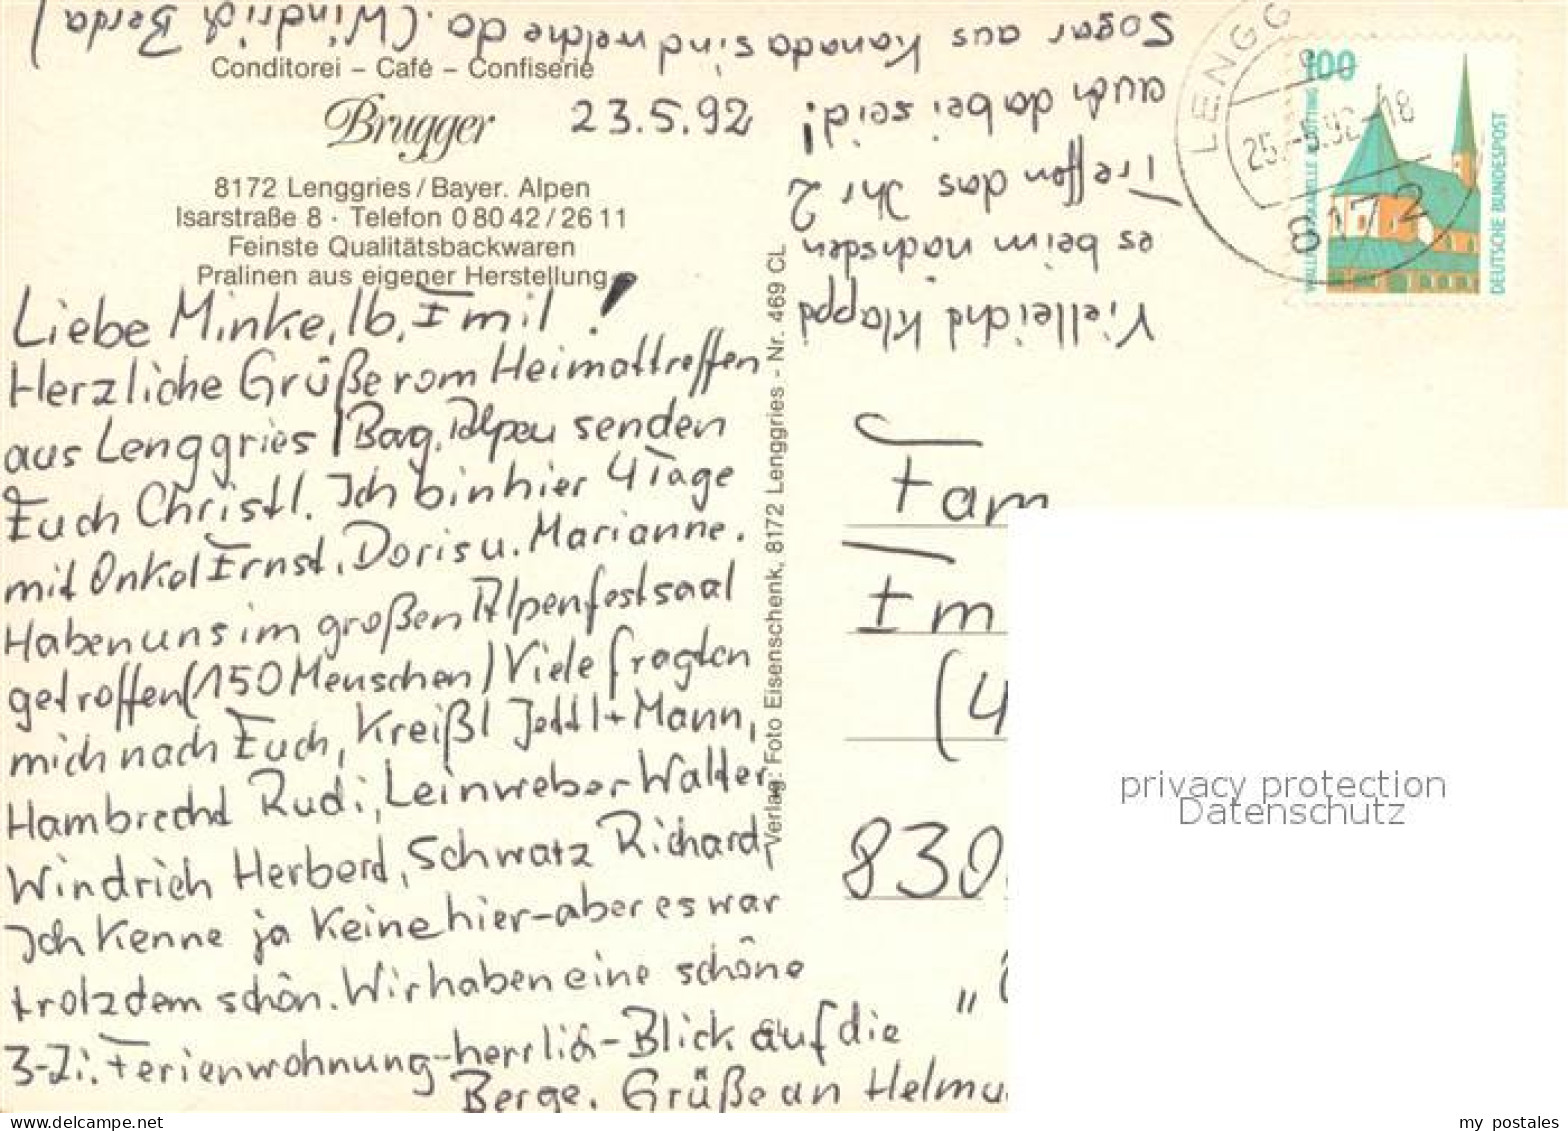 Conditorei – Café – Confiserie
Brugger
23.5.92
8172 Lenggries / Bayer. Alpen
Isarstraße 8 · Telefon 0 80 42 / 26 11
Feinste Qualitätsbackwaren
Pralinen aus eigener Herstellung
Liebe Minke, lb. Emil!
Herzliche Grüße vom Heimattreffen
aus Lenggries / Bay. Alpen senden
Euch Christl. Ich bin hier 4 Tage
mit Onkel Ernst, Doris u. Marianne.
Haben uns im großen Alpenfestsaal
getroffen (150 Menschen) Viele fragten
mich nach Euch, Kreißl Jettl + Mann,
Hambrecht Rudi, Leinweber Walter,
Windrich Herbert, Schwatz Richard,
Ich kenne ja keine hier – aber es war
trotzdem schön. Wir haben eine schöne
3-Zi. Ferienwohnung – herrlich – Blick auf die
Berge. Grüße an Helmu
Vielleicht klappt
es beim nächsten
Treffen das Ihr 2
auch dabei seid!
Sogar aus Kanada sind welche da. (Windrich Berta)
Verlag: Foto Eisenschenk, 8172 Lenggries - Nr. 469 CL
CL
LENGG
25.-5.92-18
8172
100
DEUTSCHE BUNDESPOST
Fam
Em
(4
830
"
privacy protection
Datenschutz
www.delcampe.net
my postales